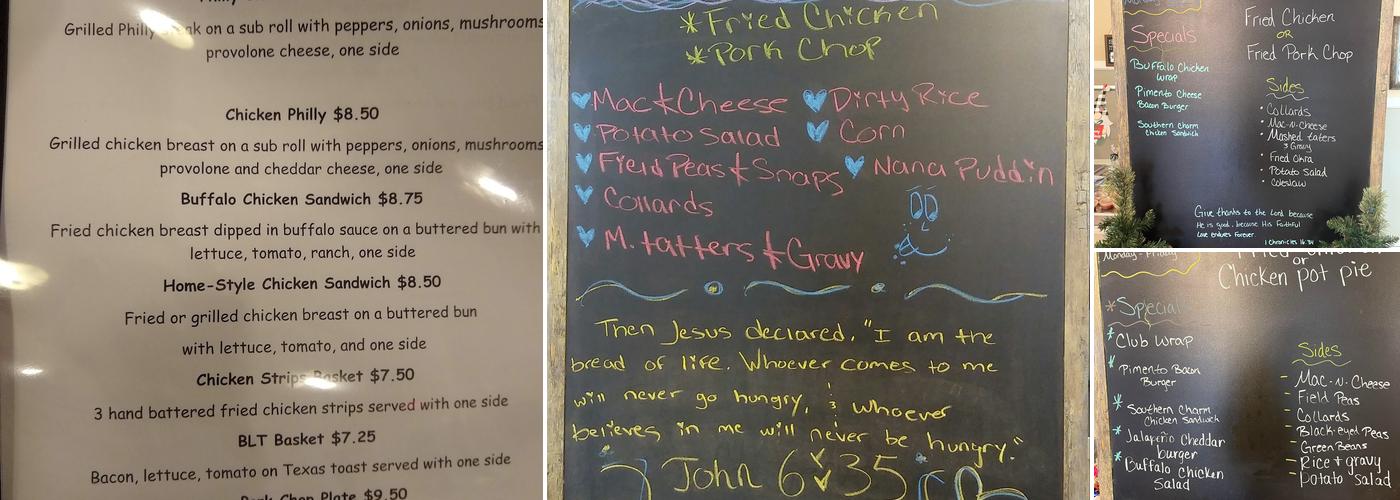 Grilled Philly on a sub roll with peppers, onions, mushrooms
provolone cheese, one side
Chicken Philly $8.50
Grilled chicken breast on a sub roll with peppers, onions, mushrooms
provolone and cheddar cheese, one side
Buffalo Chicken Sandwich $8.75
Fried chicken breast dipped in buffalo sauce on a buttered bun with
lettuce, tomato, ranch, one side
Home-Style Chicken Sandwich $8.50
Fried or grilled chicken breast on a buttered bun
with lettuce, tomato, and one side
Chicken Strips Basket $7.50
3 hand battered fried chicken strips served with one side
BLT Basket $7.25
Bacon, lettuce, tomato on Texas toast served with one side
Pork Chop Plate $9.50
*Fried Chicken
*Pork Chop
Mac & Cheese
Dirty Rice
Potato Salad
Corn
Field Peas & Snaps
Nana Puddin
Collards
M. tatters & Gravy
Then Jesus declared, "I am the
bread of life. Whoever comes to me
will never go hungry, & whoever
believes in me will never be hungry."
John 6:35
Fried Chicken
or
Fried Pork Chop
Specials
Buffalo Chicken
Wrap
Pimento Cheese
Bacon Burger
Southern Charm
Chicken Sandwich
Sides
• Collards
• Mac-n-Cheese
• Mashed taters
& Gravy
• Fried Okra
• Potato Salad
• Coleslaw
Give thanks to the Lord because
He is good, because His Faithful
Love endures Forever.
1 Chronicles 16:34
Monday - Friday
or
Chicken pot pie
*Special
*Club Wrap
*Pimento Bacon
Burger
*Southern Charm
Chicken Sandwich
*Jalapeño Cheddar
burger
*Buffalo Chicken
Salad
Sides
- Mac-n-Cheese
- Field Peas
- Collards
- Black-eyed Peas
- Green Beans
- Rice + gravy
- Potato Salad